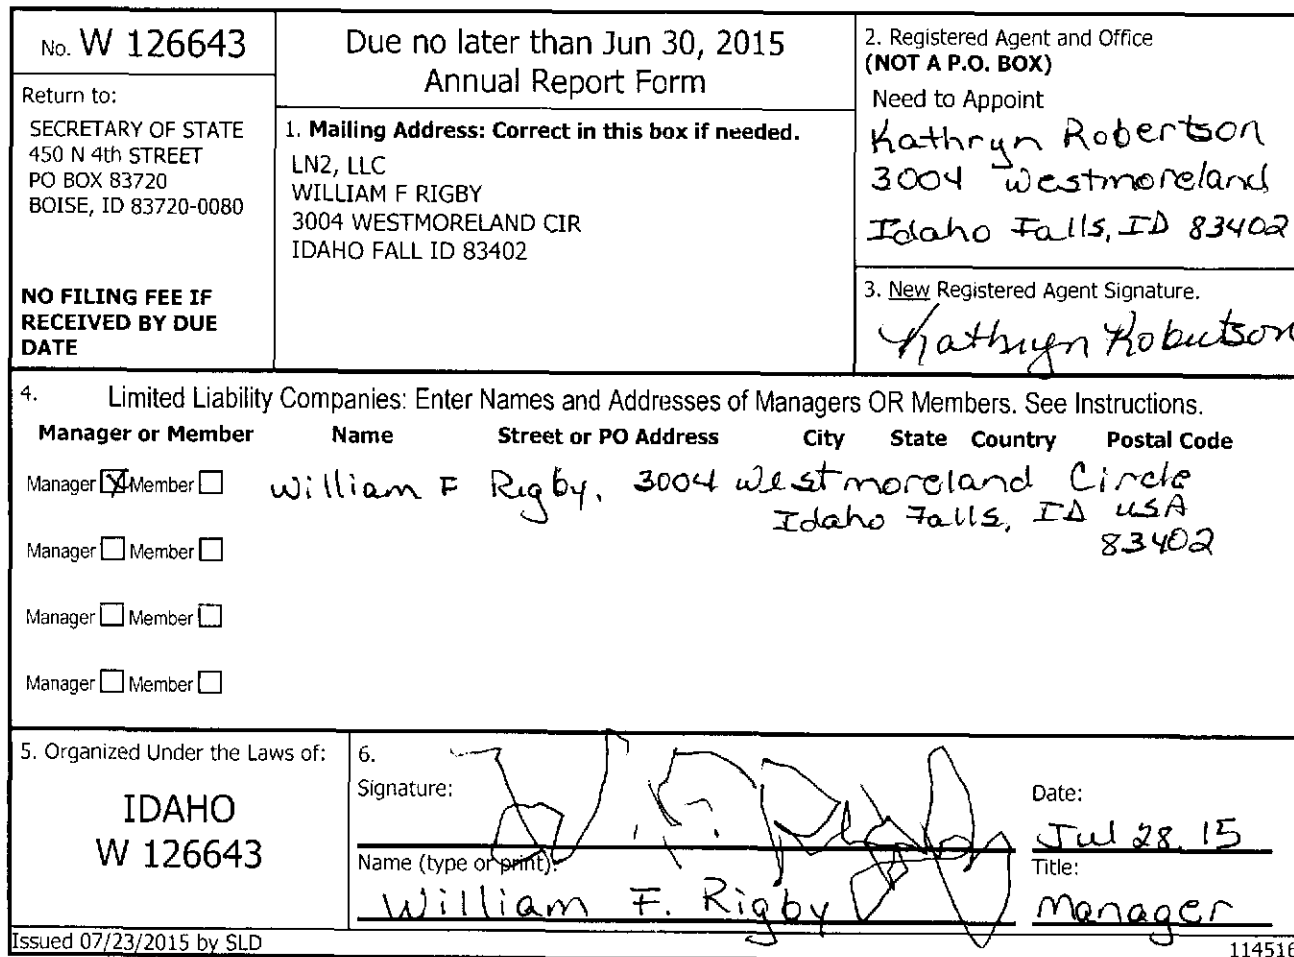 No. W 126643
Return to:
SECRETARY OF STATE
450 N 4th STREET
PO BOX 83720
BOISE, ID 83720-0080
NO FILING FEE IF
RECEIVED BY DUE
DATE
Due no later than Jun 30, 2015
Annual Report Form
1. Mailing Address: Correct in this box if needed.
LN2, LLC
WILLIAM F RIGBY
3004 WESTMORELAND CIR
IDAHO FALL ID 83402
2. Registered Agent and Office
(NOT A P.O. BOX)
Need to Appoint
Kathryn Robertson
3004 Westmoreland
Idaho Falls, ID 83402
3. New Registered Agent Signature.
Kathryn Robertson
4. Limited Liability Companies: Enter Names and Addresses of Managers OR Members. See Instructions.
Manager or Member Name Street or PO Address City State Country Postal Code
Manager Member William F Rigby, 3004 Westmoreland Circle
Idaho Falls, ID USA
83402
Manager Member
Manager Member
Manager Member
5. Organized Under the Laws of:
IDAHO
W 126643
6.
Signature:
Date:
Jul 28, 15
Name (type or print):
William F. Rigby
Title:
Manager
Issued 07/23/2015 by SLD
114516